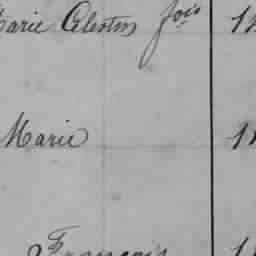 Marie Celestin fois
Marie
François